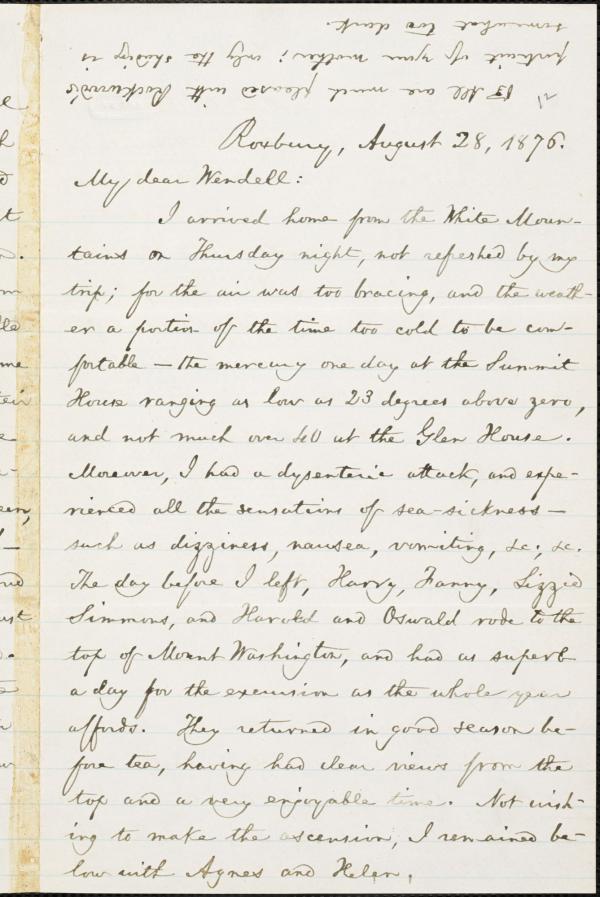 We are all much pleased with Rockwood's
portrait of your mother; only the shading is
somewhat too dark.
Roxbury, August 28, 1876.
My dear Wendell:
I arrived home from the White Moun-
tains on Thursday night, not refreshed by my
trip; for the air was too bracing, and the weath-
er a portion of the time too cold to be com-
fortable — the mercury one day at the Summit
House ranging as low as 23 degrees above zero,
and not much over 40 at the Glen House.
Moreover, I had a dysenteric attack, and expe-
rienced all the sensations of sea-sickness —
such as dizziness, nausea, vomiting, &c., &c.
The day before I left, Harry, Fanny, Lizzie
Simmons, and Harold and Oswald rode to the
top of Mount Washington, and had as superb
a day for the excursion as the whole year
affords. They returned in good season be-
fore tea, having had clear views from the
top and a very enjoyable time. Not wish-
ing to make the ascension, I remained be-
low with Agnes and Helen.